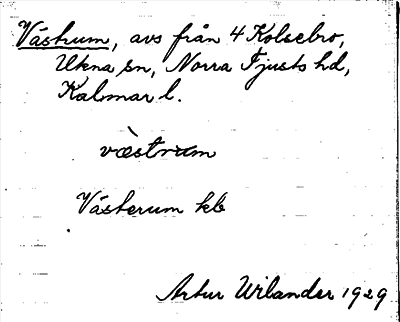 Västrum, avs från 4 Kolsebro,
Ukna sn, Norra Tjusts hd,
Kalmar l.
væ̀strum
Västerum kb
Artur Wilander 1929